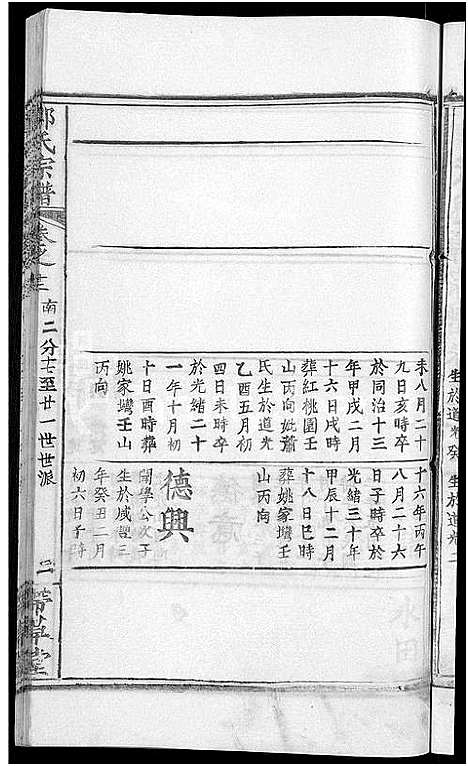 生於道光癸
生於道光二
未八月二十
九日亥時卒
於同治十三
年甲戌二月
十六日戌時
葬紅桃園壬
山丙向妣蕭
氏生於道光
乙酉五月初
四日未時卒
於光緒二十
一年十月初
十日酉時葬
姚家灣壬山
丙向
十六年丙午
八月二十六
日子時卒於
光緒三十年
甲辰十二月
十八日巳時
葬姚家灣壬
山丙向
德興
開學公次子
生於咸豐三
年癸丑二月
初六日子時
氏宗譜
卷之
南二分十七至廿一世世派
二
堂